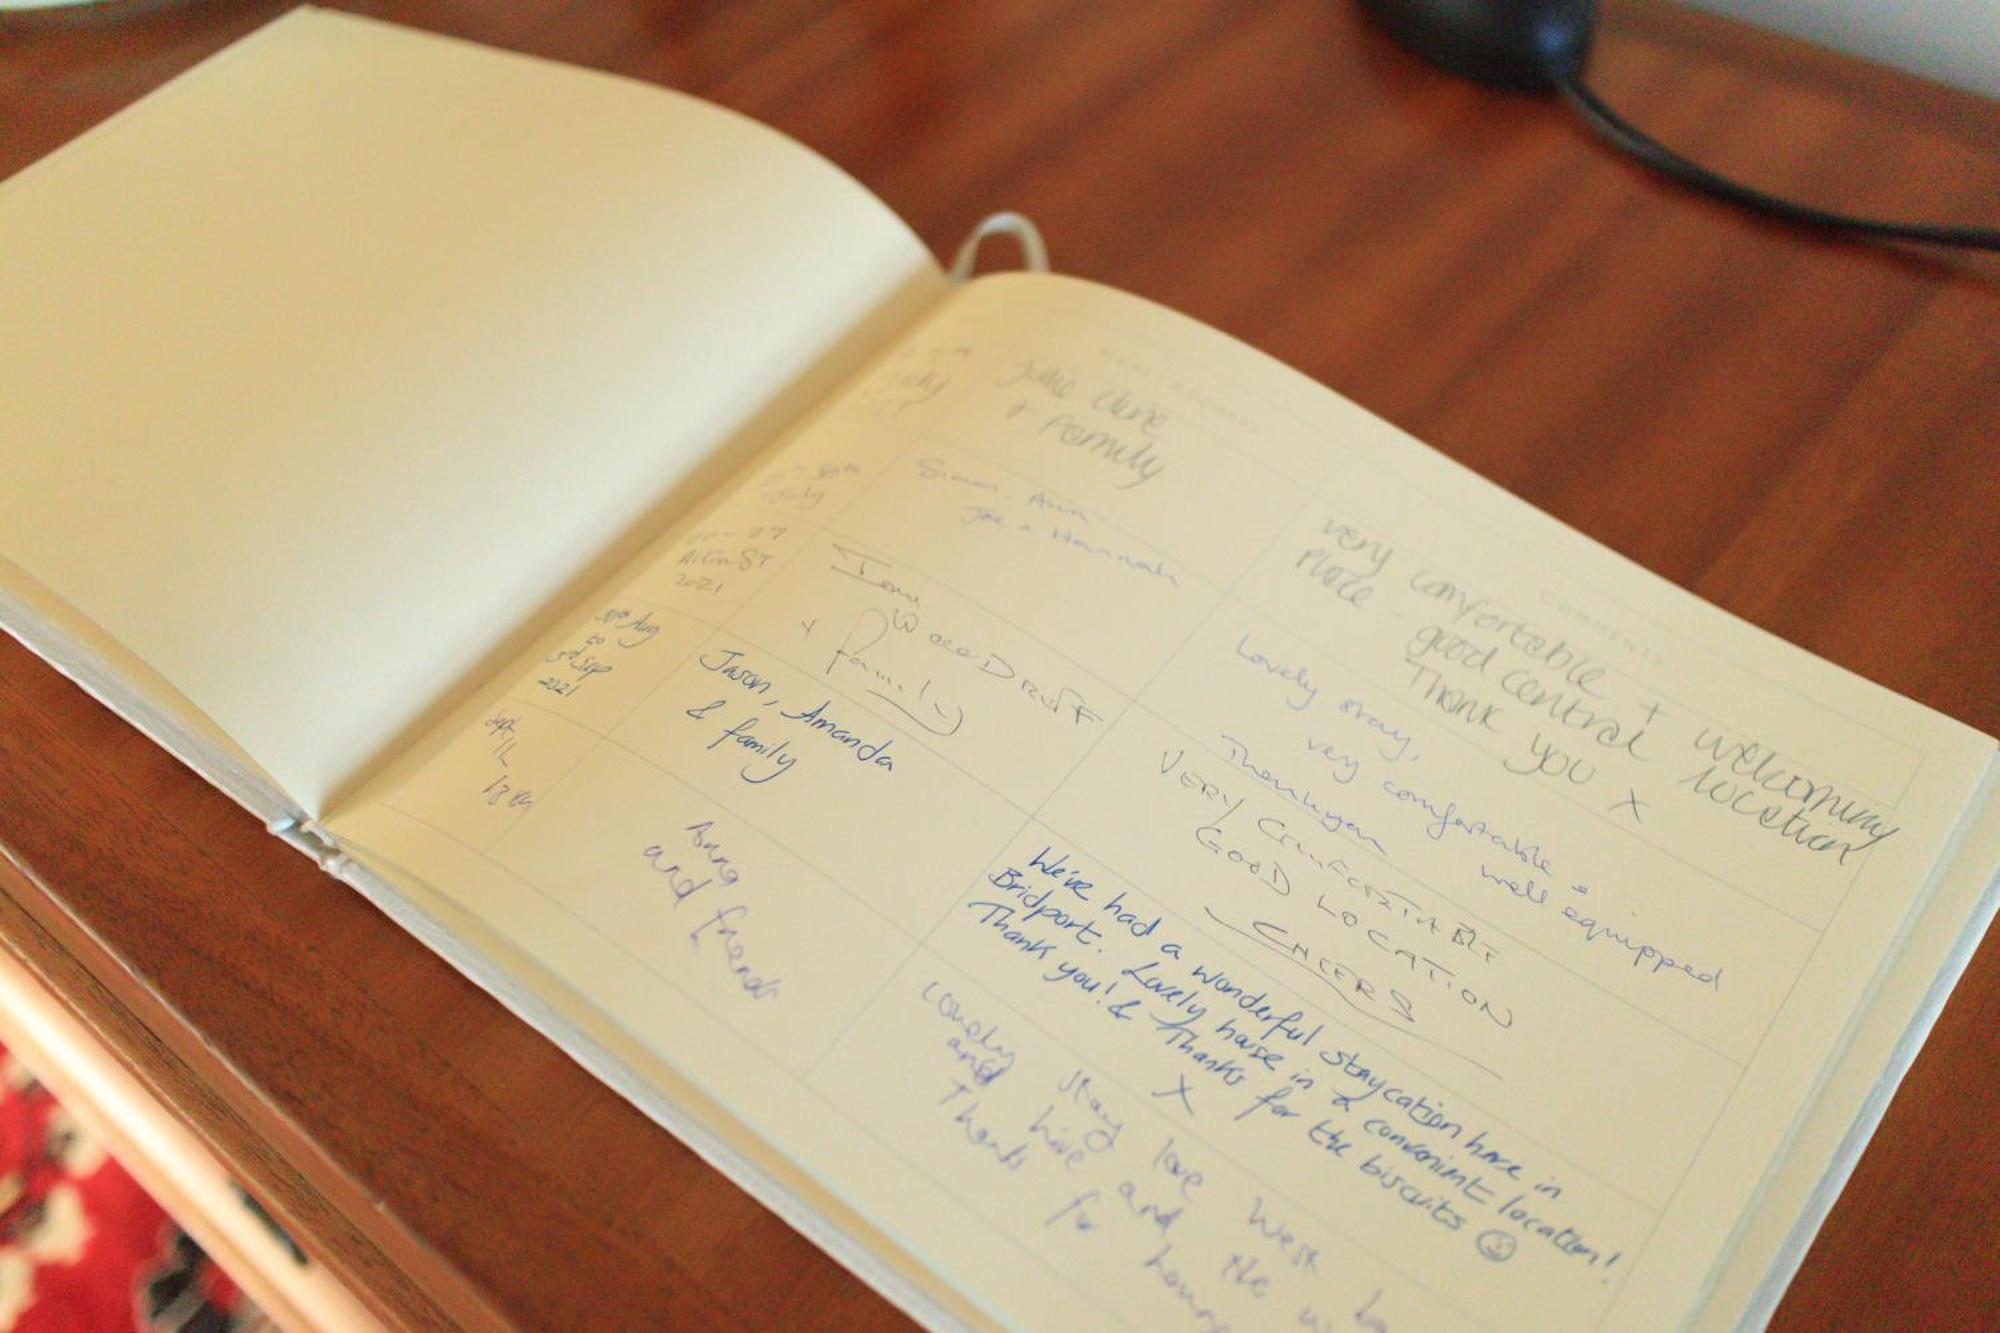 NAME / ADDRESS
COMMENTS
July
& Family
very comfortable + welcoming
Place - good central location
Thank you X
30th
July
Simon, Ann
Joe & Hannah
Lovely stay,
very comfortable & well equipped
Thankyou
27
AUGUST
2021
& family
VERY COMFORTABLE
GOOD LOCATION
CHEERS
30th Aug
to
3rd Sep
2021
Jason, Amanda
& family
We've had a wonderful staycation here in
Bridport. Lovely house in a convenient location!
Thank you! & Thanks for the biscuits ☺
X
Sept
13th
Anna
and friends
Lovely stay love West
and hive and the
Thanks for having